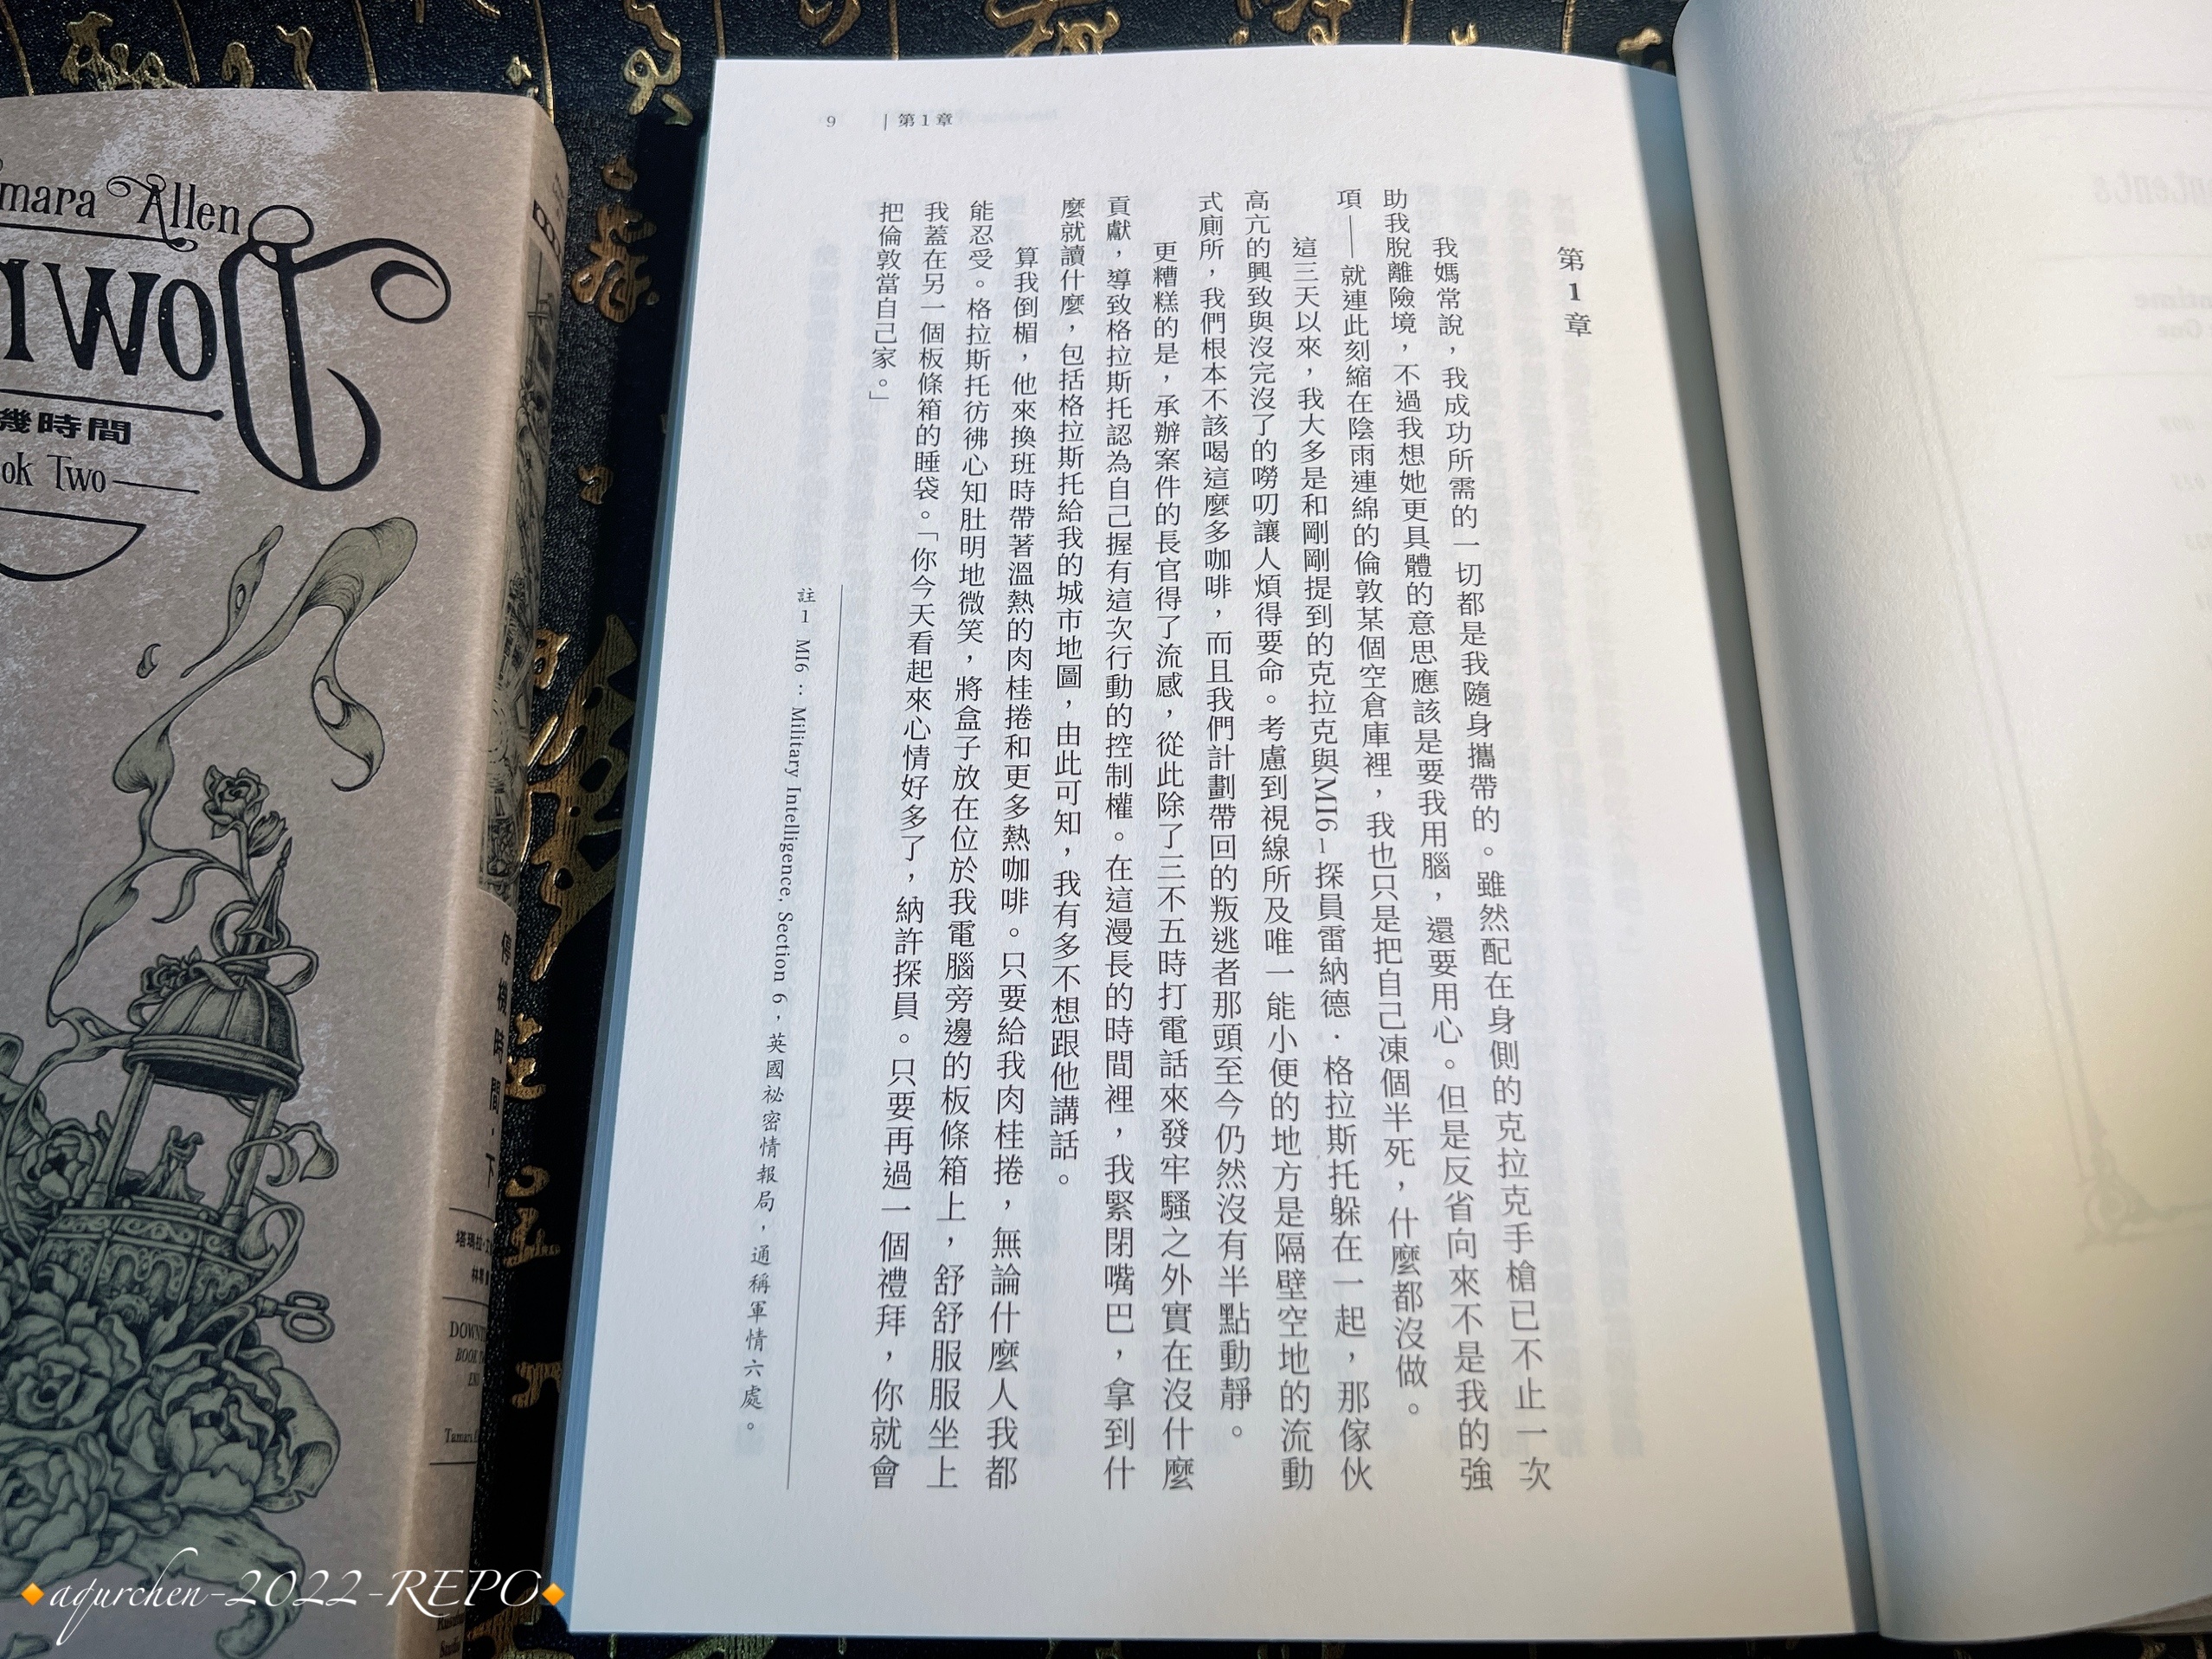 9
第1章
第1章
我媽常說，我成功所需的一切都是我隨身攜帶的。雖然配在身側的克拉克手槍已不止一次
助我脫離險境，不過我想她更具體的意思應該是要我用腦，還要用心。但是反省向來不是我的強
項——就連此刻縮在陰雨連綿的倫敦某個空倉庫裡，我也只是把自己凍個半死，什麼都沒做。
這三天以來，我大多是和剛剛提到的克拉克與MI6 1探員雷納德．格拉斯托躲在一起，那傢伙
高亢的興致與沒完沒了的嘮叨讓人煩得要命。考慮到視線所及唯一能小便的地方是隔壁空地的流動
式廁所，我們根本不該喝這麼多咖啡，而且我們計劃帶回的叛逃者那頭至今仍然沒有半點動靜。
更糟糕的是，承辦案件的長官得了流感，從此除了三不五時打電話來發牢騷之外實在沒什麼
貢獻，導致格拉斯托認為自己握有這次行動的控制權。在這漫長的時間裡，我緊閉嘴巴，拿到什
麼就讀什麼，包括格拉斯托給我的城市地圖，由此可知，我有多不想跟他講話。
算我倒楣，他來換班時帶著溫熱的肉桂捲和更多熱咖啡。只要給我肉桂捲，無論什麼人我都
能忍受。格拉斯托彷彿心知肚明地微笑，將盒子放在位於我電腦旁邊的板條箱上，舒舒服服坐上
我蓋在另一個板條箱的睡袋。「你今天看起來心情好多了，納許探員。只要再過一個禮拜，你就會
把倫敦當自己家。」
註1 MI6：Military Intelligence, Section 6，英國祕密情報局，通稱軍情六處。
mara Allen
Dow
幾時間
ok Two
停機時間·下
塔瑪拉
林
DOWNT
BOOK
Tamara
aqurchen-2022-REPO